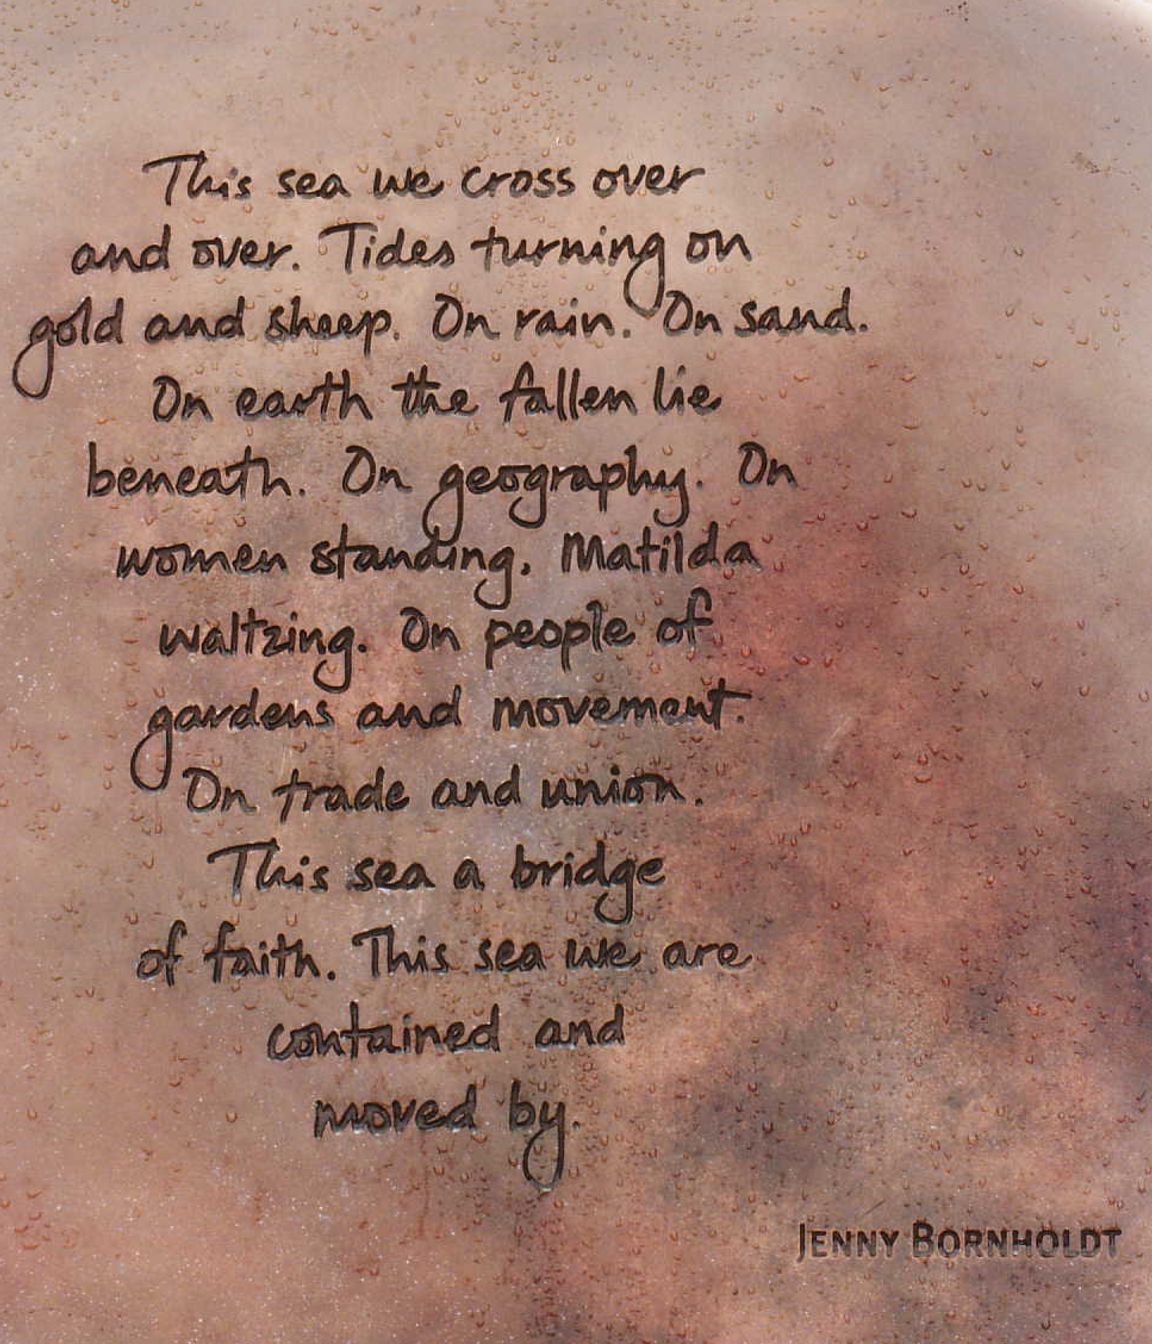 This sea we cross over
and over. Tides turning on
gold and sheep. On rain. On sand.
On earth the fallen lie
beneath. On geography. On
women standing. Matilda
waltzing. On people of
gardens and movement.
On trade and union.
This sea a bridge
of faith. This sea we are
contained and
moved by.
JENNY BORNHOLDT